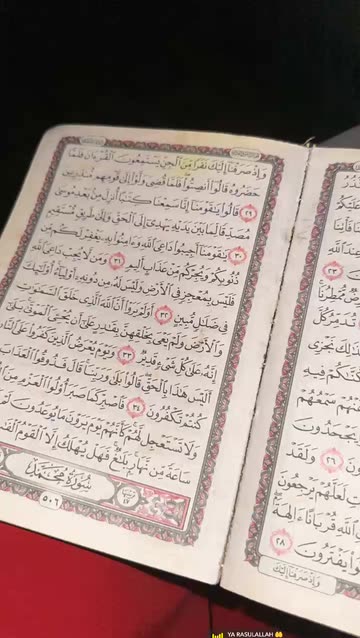 وَإِذْ صَرَفْنَآ إِلَيْكَ نَفَرًا مِّنَ ٱلْجِنِّ يَسْتَمِعُونَ ٱلْقُرْءَانَ فَلَمَّا
حَضَرُوهُ قَالُوٓا۟ أَنصِتُوا۟ فَلَمَّا قُضِىَ وَلَّوْا۟ إِلَىٰ قَوْمِهِم مُّنذِرِينَ
٢٩ قَالُوا۟ يَٰقَوْمَنَآ إِنَّا سَمِعْنَا كِتَٰبًا أُنزِلَ مِنۢ بَعْدِ مُوسَىٰ
مُصَدِّقًا لِّمَا بَيْنَ يَدَيْهِ يَهْدِىٓ إِلَى ٱلْحَقِّ وَإِلَىٰ طَرِيقٍ مُّسْتَقِيمٍ
٣٠ يَٰقَوْمَنَآ أَجِيبُوا۟ دَاعِىَ ٱللَّهِ وَءَامِنُوا۟ بِهِۦ يَغْفِرْ لَكُم مِّن
ذُنُوبِكُمْ وَيُجِرْكُم مِّنْ عَذَابٍ أَلِيمٍ ٣١ وَمَن لَّا يُجِبْ دَاعِىَ ٱللَّهِ
فَلَيْسَ بِمُعْجِزٍ فِى ٱلْأَرْضِ وَلَيْسَ لَهُۥ مِن دُونِهِۦٓ أَوْلِيَآءُ أُو۟لَٰٓئِكَ
فِى ضَلَٰلٍ مُّبِينٍ ٣٢ أَوَلَمْ يَرَوْا۟ أَنَّ ٱللَّهَ ٱلَّذِى خَلَقَ ٱلسَّمَٰوَٰتِ
وَٱلْأَرْضَ وَلَمْ يَعْىَ بِخَلْقِهِنَّ بِقَٰدِرٍ عَلَىٰٓ أَن يُحْۦِىَ ٱلْمَوْتَىٰ بَلَىٰٓ
إِنَّهُۥ عَلَىٰ كُلِّ شَىْءٍ قَدِيرٌ ٣٣ وَيَوْمَ يُعْرَضُ ٱلَّذِينَ كَفَرُوا۟ عَلَى ٱلنَّارِ
أَلَيْسَ هَٰذَا بِٱلْحَقِّ قَالُوا۟ بَلَىٰ وَرَبِّنَا قَالَ فَذُوقُوا۟ ٱلْعَذَابَ
كُنتُمْ تَكْفُرُونَ ٣٤ فَٱصْبِرْ كَمَا صَبَرَ أُو۟لُوا۟ ٱلْعَزْمِ مِنَ
وَلَا تَسْتَعْجِل لَّهُمْ كَأَنَّهُمْ يَوْمَ يَرَوْنَ مَا يُوعَدُونَ لَمْ
سَاعَةً مِّن نَّهَارٍ بَلَٰغٌ فَهَلْ يُهْلَكُ إِلَّا ٱلْقَوْمُ
سُورَةُ مُحَمَّدٍ
٥٠٦
عَلَيْكُم
٢٣
تَجْزِى
سَمْعُهُمْ
يَجْحَدُونَ
٢٦ وَلَقَدْ
لَعَلَّهُمْ يَرْجِعُونَ
ٱللَّهِ قُرْبَانًا ءَالِهَةً
يَفْتَرُونَ ٢٨
وَإِذْ صَرَفْنَآ إِلَيْكَ
YA RASULALLAH 🤲